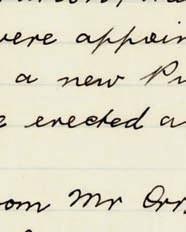 were appoin
a new Pr
e erected a
om Mr Orr